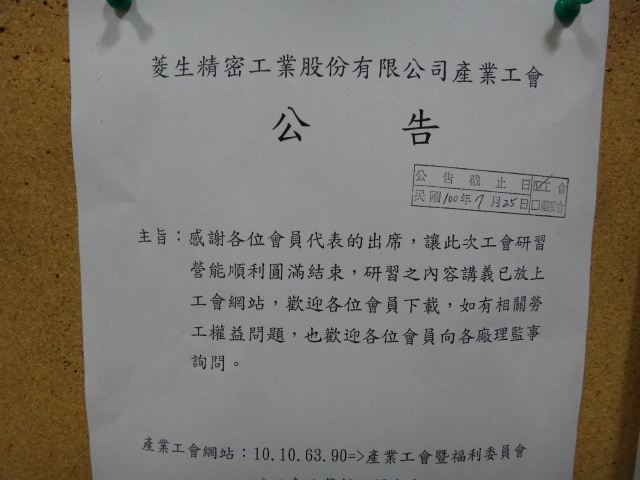 菱生精密工業股份有限公司產業工會
公告
公告截止日 工會
民國100年7月25日
主旨：感謝各位會員代表的出席，讓此次工會研習
營能順利圓滿結束，研習之內容講義已放上
工會網站，歡迎各位會員下載，如有相關勞
工權益問題，也歡迎各位會員向各廠理監事
詢問。
產業工會網站：10.10.63.90=>產業工會暨福利委員會